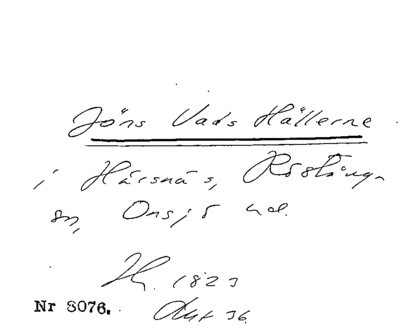 Jöns Vads Hällerne
i Härsnäs, Röstånga
sn, Onsjö hd.
H. 1823
Nr 8076. Akt 36